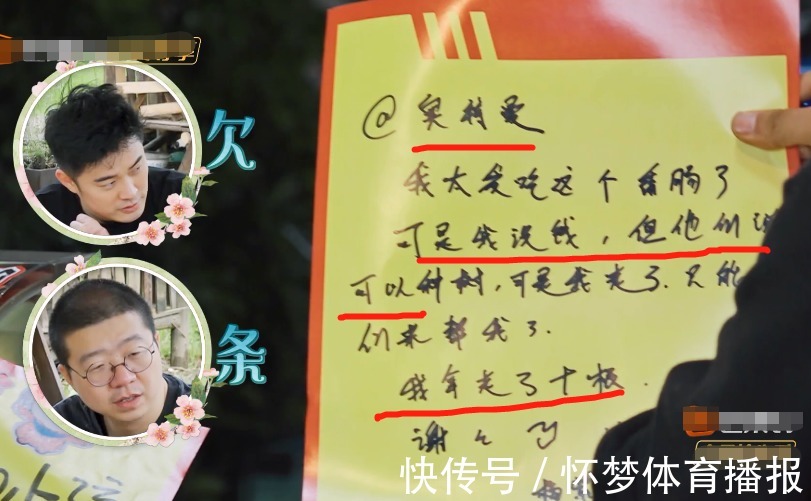 欠
条
@奥特曼
我太爱吃这个香肠了
可是我没钱，但他们说
可以种树，可是我走了.只能
们来帮我了.
我拿走了十根.
谢々了
快传号 / 怀梦体育播报